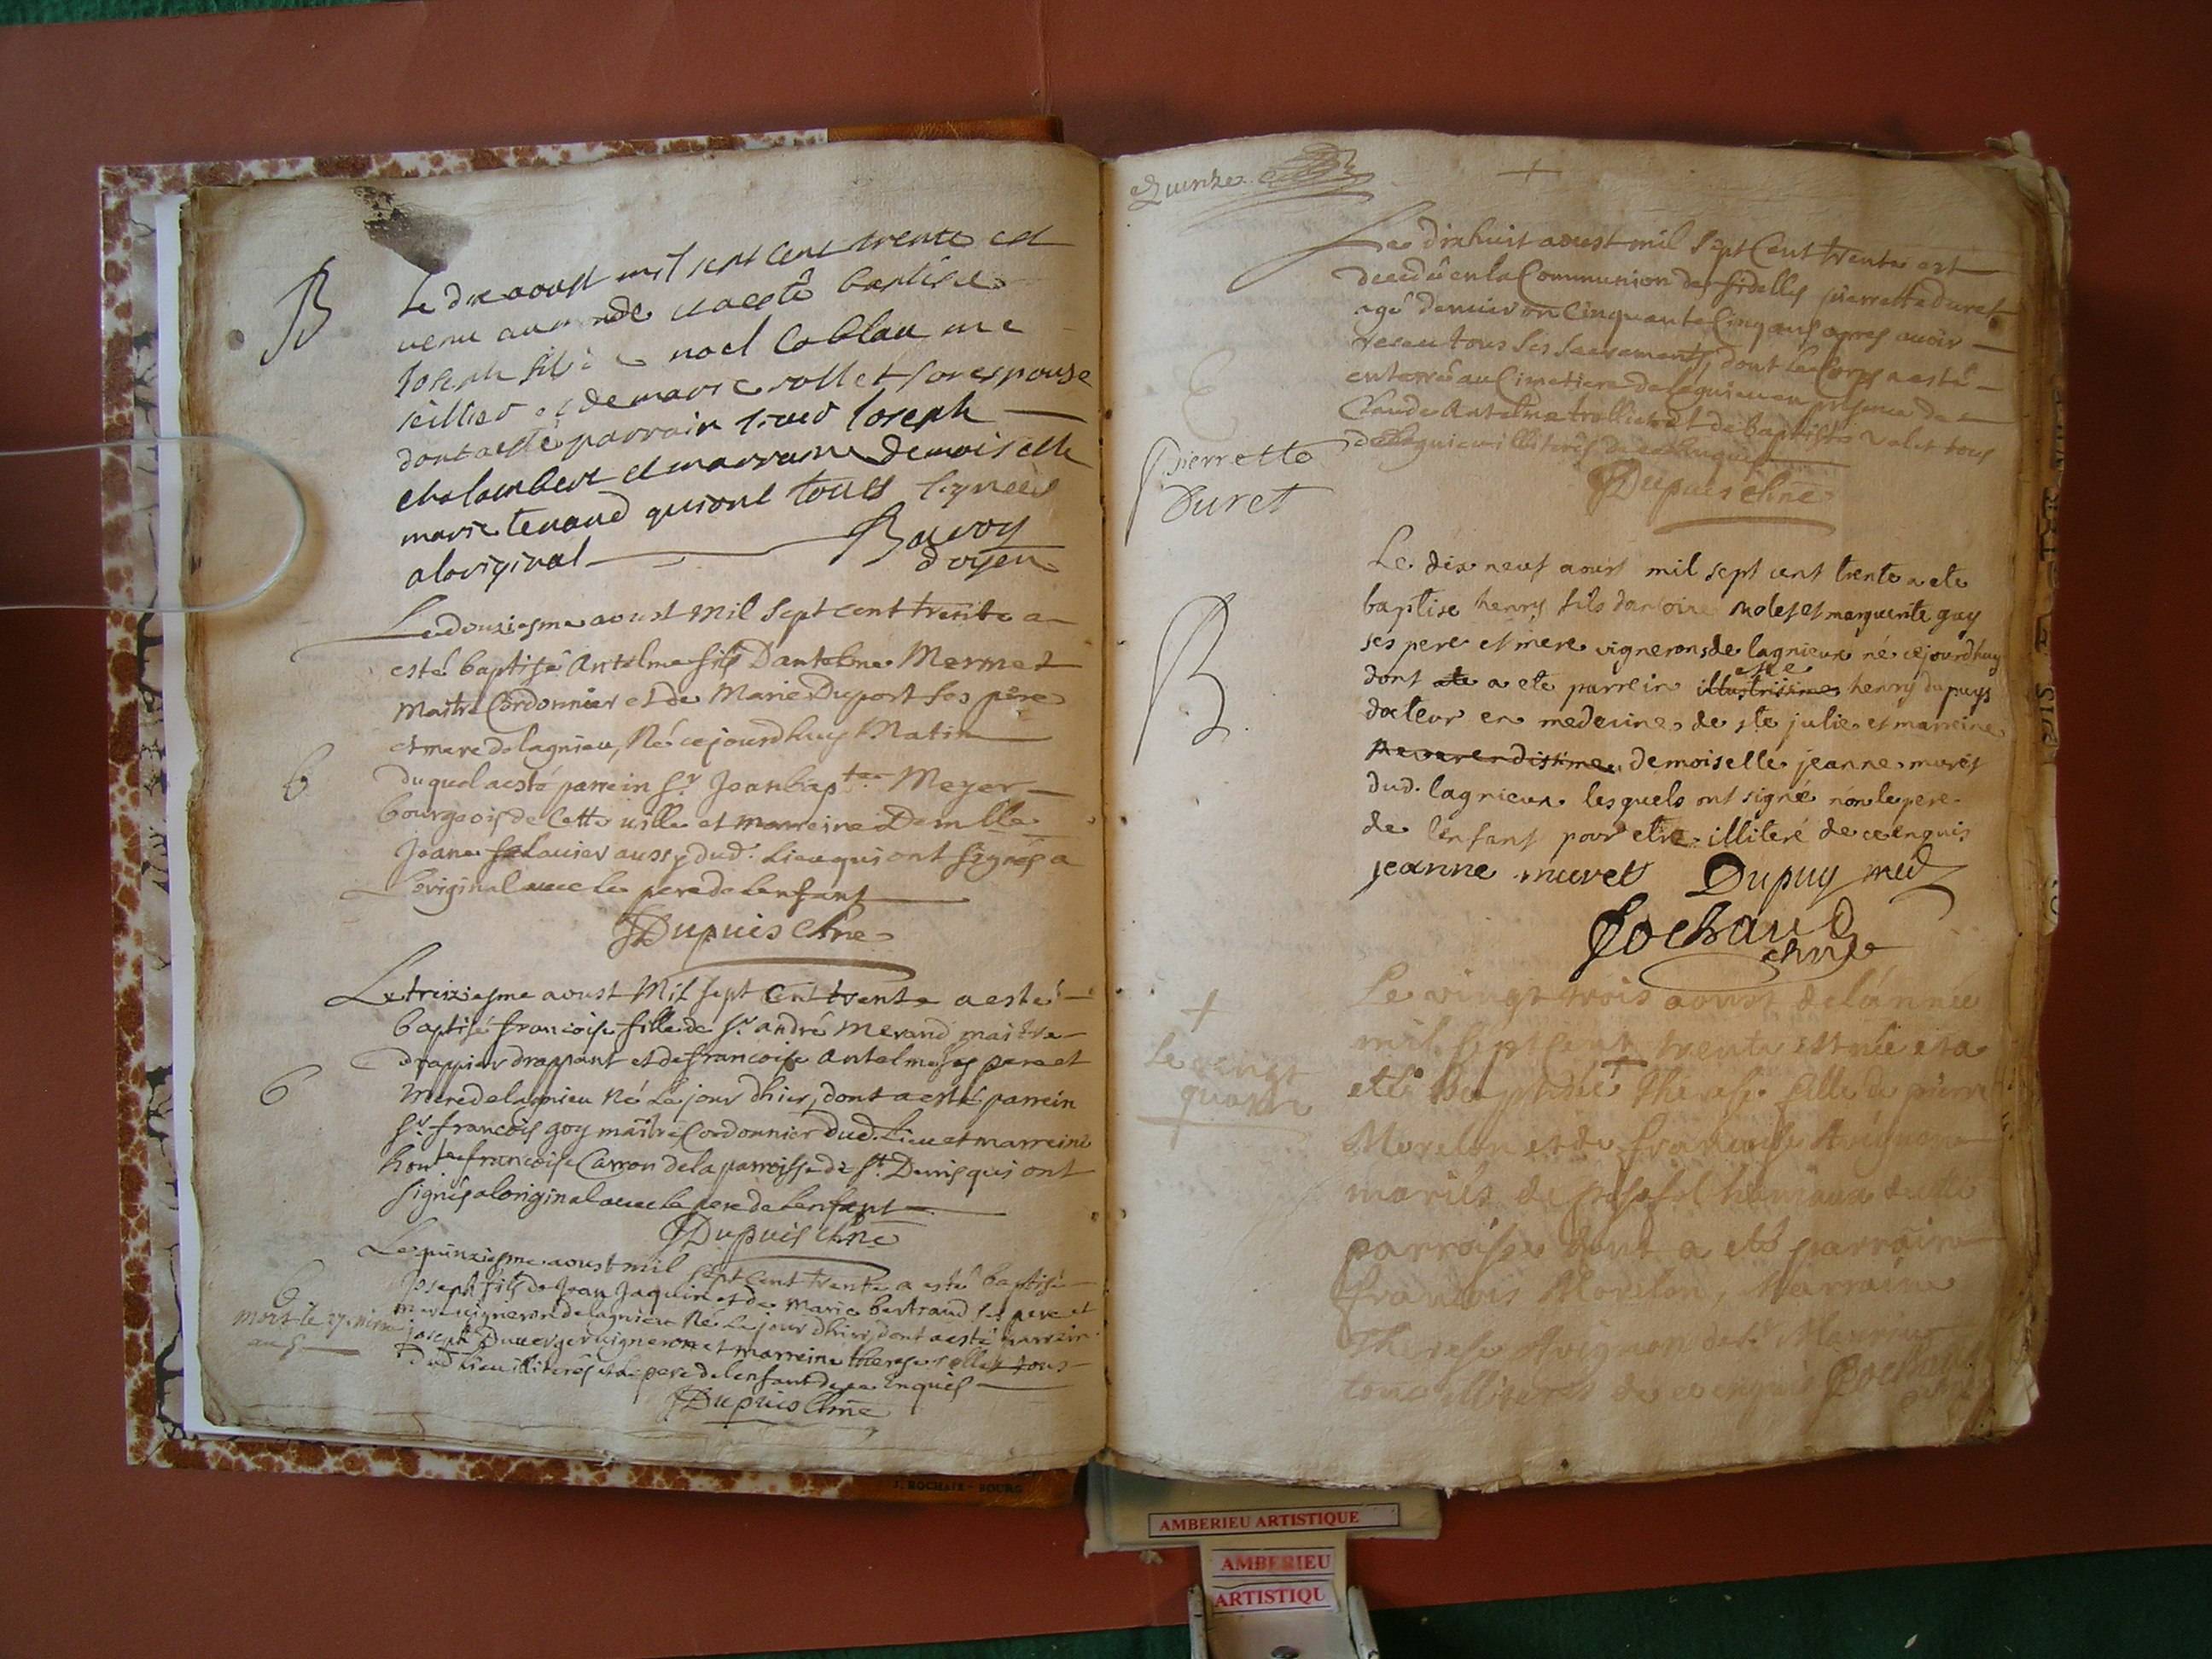 B
Le dix aoust mil sept cent trente est
venu au monde et a esté baptisé
Joseph fils de noel
et de marie rollet son espouse
dont a esté parrain sieur Joseph
chalambert et marraine demoiselle
marie tenand qui ont tous signéés
a loriginal
Bavoy
doyen
Le douziesme aoust Mil Sept cent trente a
esté baptisé Antelme fils Dantelme Mermet
Maitre Cordonnier et de Marie Duport ses père
et mere de lagnieu, Né cejourdhuy Matin
b
duquel a esté parrein Sr. Jean bapte. Meyer
bourgeois de Cette ville et marreine Demlle
Jeane aussy dud. Lieu qui ont signés a
Loriginal avec le pere de Lenfant
Dupuis chne
Le treiziesme aoust Mil sept Cent trente a esté
baptisé francoise fille de Sr. andré Merand maitre
drappier drappant et de francoise Antelme ses pere et
6
Mere de lagnieu Né Le jour dhier, dont a esté parrein
Sr. francois goy maitre Cordonnier dud. Lieu et marreine
honte. francoise Carron de la parroisse de St. Denis qui ont
signés a loriginal avec le pere de Lenfant
Dupuis chne
Le quinziesme aoust mil sept Cent trente a esté baptisé
6
Joseph fils de Jean Jaquin et de Marie bertrand ses pere et
mort le 27
mere vigneron de lagnieu Né Le jour dhier, dont a esté parrein
an 5
joseph Duverger vigneron et marreine therese rollet tous
dud Lieu illiterés et le pere de lenfant de ce Enquis
Dupuis chne
Quinze
+
Le dixhuit aoust mil Sept Cent trente est
decedé en la Communion des fidelles pierrette duret
agé denviron Cinquante Cinq ans apres avoir
receu tous Ses Sacrements, dont le Corps a esté
enterré au Cimetiere de lagnieu en presence de
Claude Antelme trolliet et de baptiste Valet tous
de lagnieu illiterés de ce enquis
Pierrette
Duret
Dupuis chne
Le dix neuf aoust mil sept cent trente a ete
baptise henry fils dantoine molet et marguerite guy
ses pere et mere vignerons de lagnieux né cejourdhuy
B
dont ete a ete parrein illustrissime henry dupuys
docteur en medecine de ste julie et marreine
Reverendissime demoiselle jeanne muret
dud. lagnieux lesquels ont signé non le pere
de lenfant pour etre illiteré de ce enquis
jeanne muret Dupuy med
Cochaud
chne
Le vingt trois aoust de lánnée
+
mil sept Cent trente est née et a
Le vingt
quatre
eté baptisée Therese fille de pierre
Morelon et de francoise Avignon
mariés de
parroisse dont a eté parrain
francois Morelon, Marraine
Therese Avignon
tous illiterés de ce enquis Cochaud
chne
J. ROCHAIX - BOURG
AMBERIEU ARTISTIQUE
AMBERIEU
ARTISTIQU